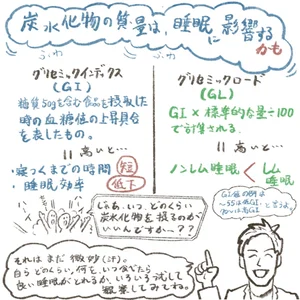 炭水化物の質量は、睡眠に影響する
かも
ふわ
ふわ
グリセミックインデクス
(GI)
糖質50gを含む食品を摂取した
時の血糖値の上昇具合
を表したもの。
|| 高いと…
・寝つくまでの時間 短
・睡眠効率 低下
グリセミックロード
(GL)
GI × 標準的な量÷100
で計算される。
|| 高いと…
ノンレム睡眠 < レム睡眠
GI値の例は
~55は低GI、
70~は高GI
と言うよ。
じゃあ、いつ、どのくらい
炭水化物を摂るのが、
いいんですか~??
それはまだ微妙(汗)。
自らどのくらい、何を、いつ食べたら
良い睡眠がとれるか、いろいろ試して
観察してみてね。